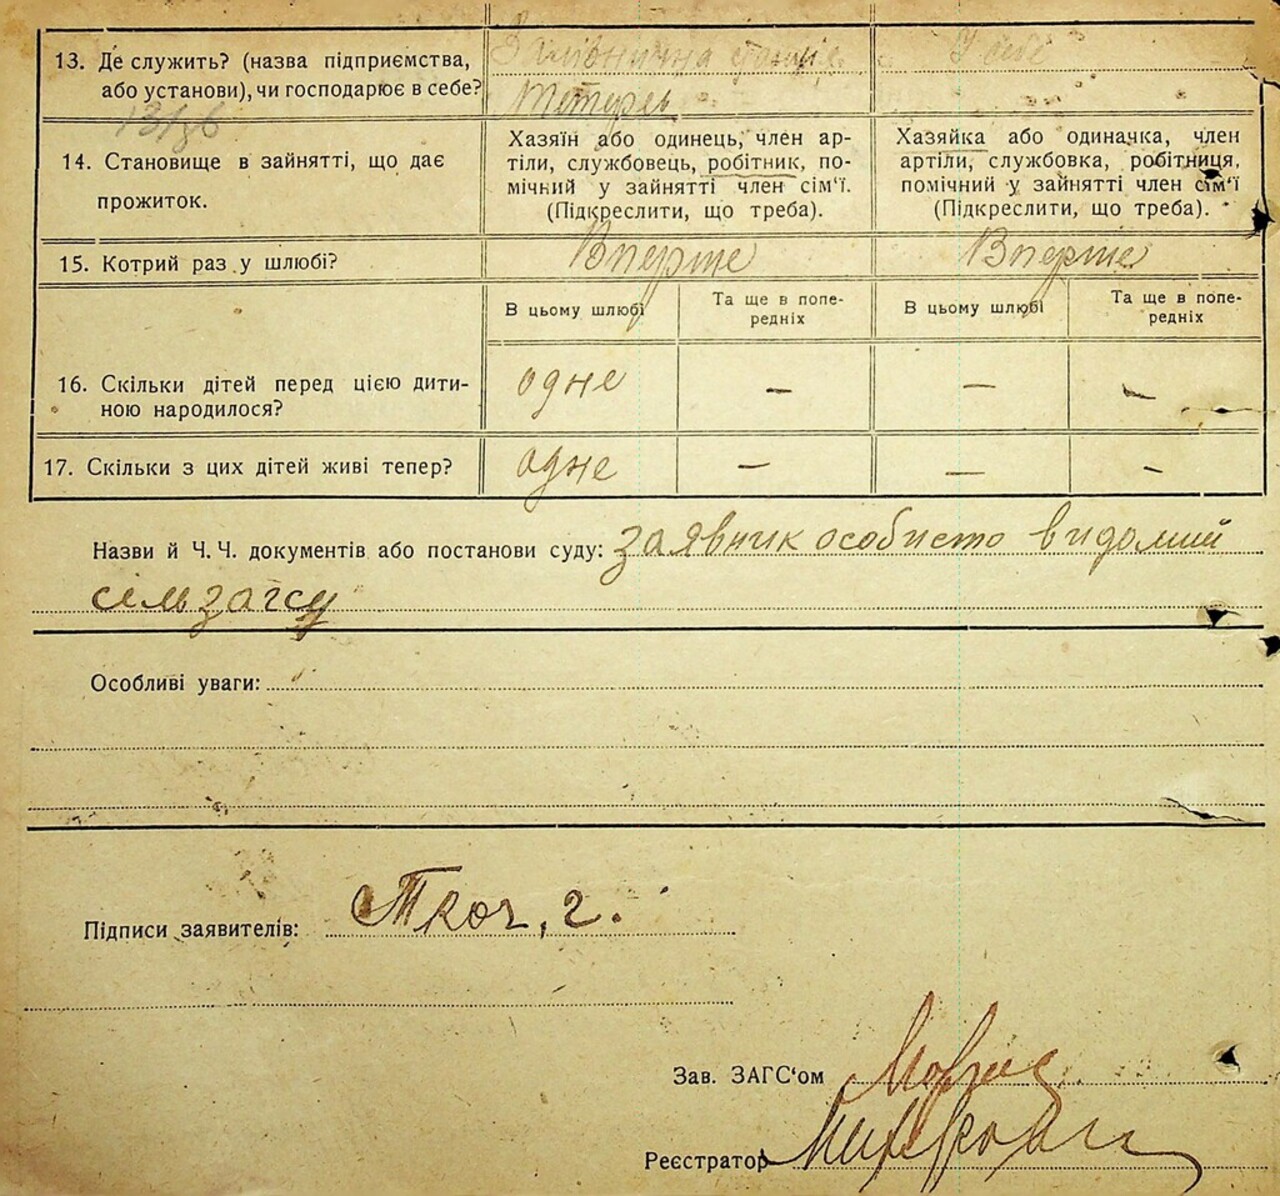 13. Де служить? (назва підприємства, або установи), чи господарює в себе?
Залізнична станція Тетерев
У себе
14. Становище в зайнятті, що дає прожиток.
Хазяїн або одинець, член ар-
тіли, службовець, робітник, по-
мічний у зайнятті член сім‘ї.
(Підкреслити, що треба).
Хазяйка або одиначка, член
артіли, службовка, робітниця,
помічний у зайнятті член сім‘ї
(Підкреслити, що треба).
15. Котрий раз у шлюбі?
Вперше
Вперше
В цьому шлюбі
Та ще в попе-
редніх
В цьому шлюбі
Та ще в попе-
редніх
16. Скільки дітей перед цією дити-
ною народилося?
одне — — —
17. Скільки з цих дітей живі тепер?
одне — — —
Назви й Ч. Ч. документів або постанови суду: заявник особисто видомий
сільзагсу
Особливі уваги:
Підписи заявителів: Ткоч, г.
Зав. ЗАГС‘ом
Реєстратор